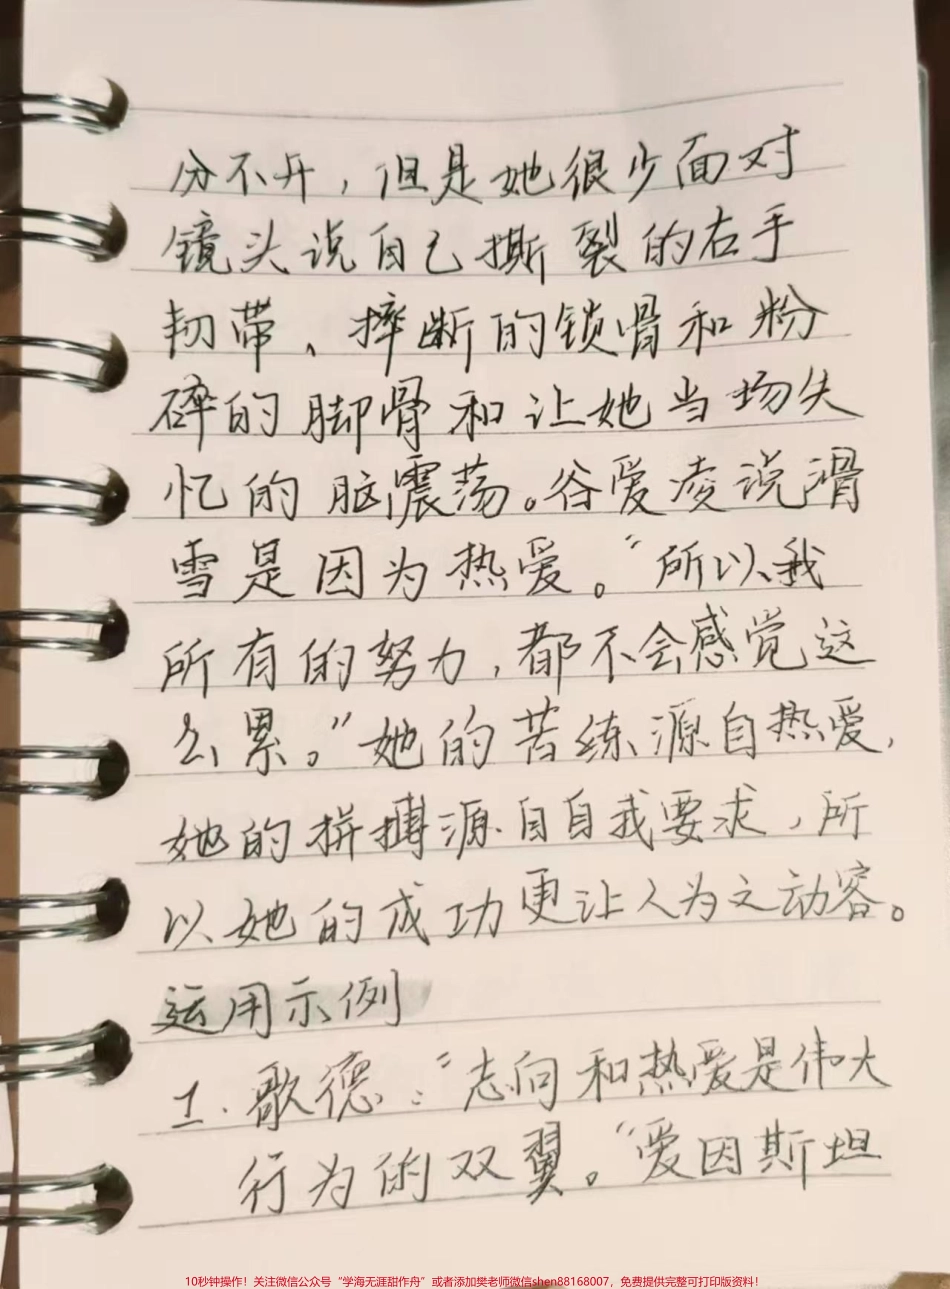 分不开，但是她很少面对
镜头说自己撕裂的右手
韧带、摔断的锁骨和粉
碎的脚骨和让她当场失
忆的脑震荡。谷爱凌说滑
雪是因为热爱。“所以我
所有的努力，都不会感觉这
么累。”她的苦练源自热爱，
她的拼搏源自自我要求，所
以她的成功更让人为之动容。
运用示例
1.歌德：“志向和热爱是伟大
行为的双翼。“爱因斯坦
10秒钟操作！关注微信公众号“学海无涯甜作舟”或者添加樊老师微信shen88168007，免费提供完整可打印版资料！